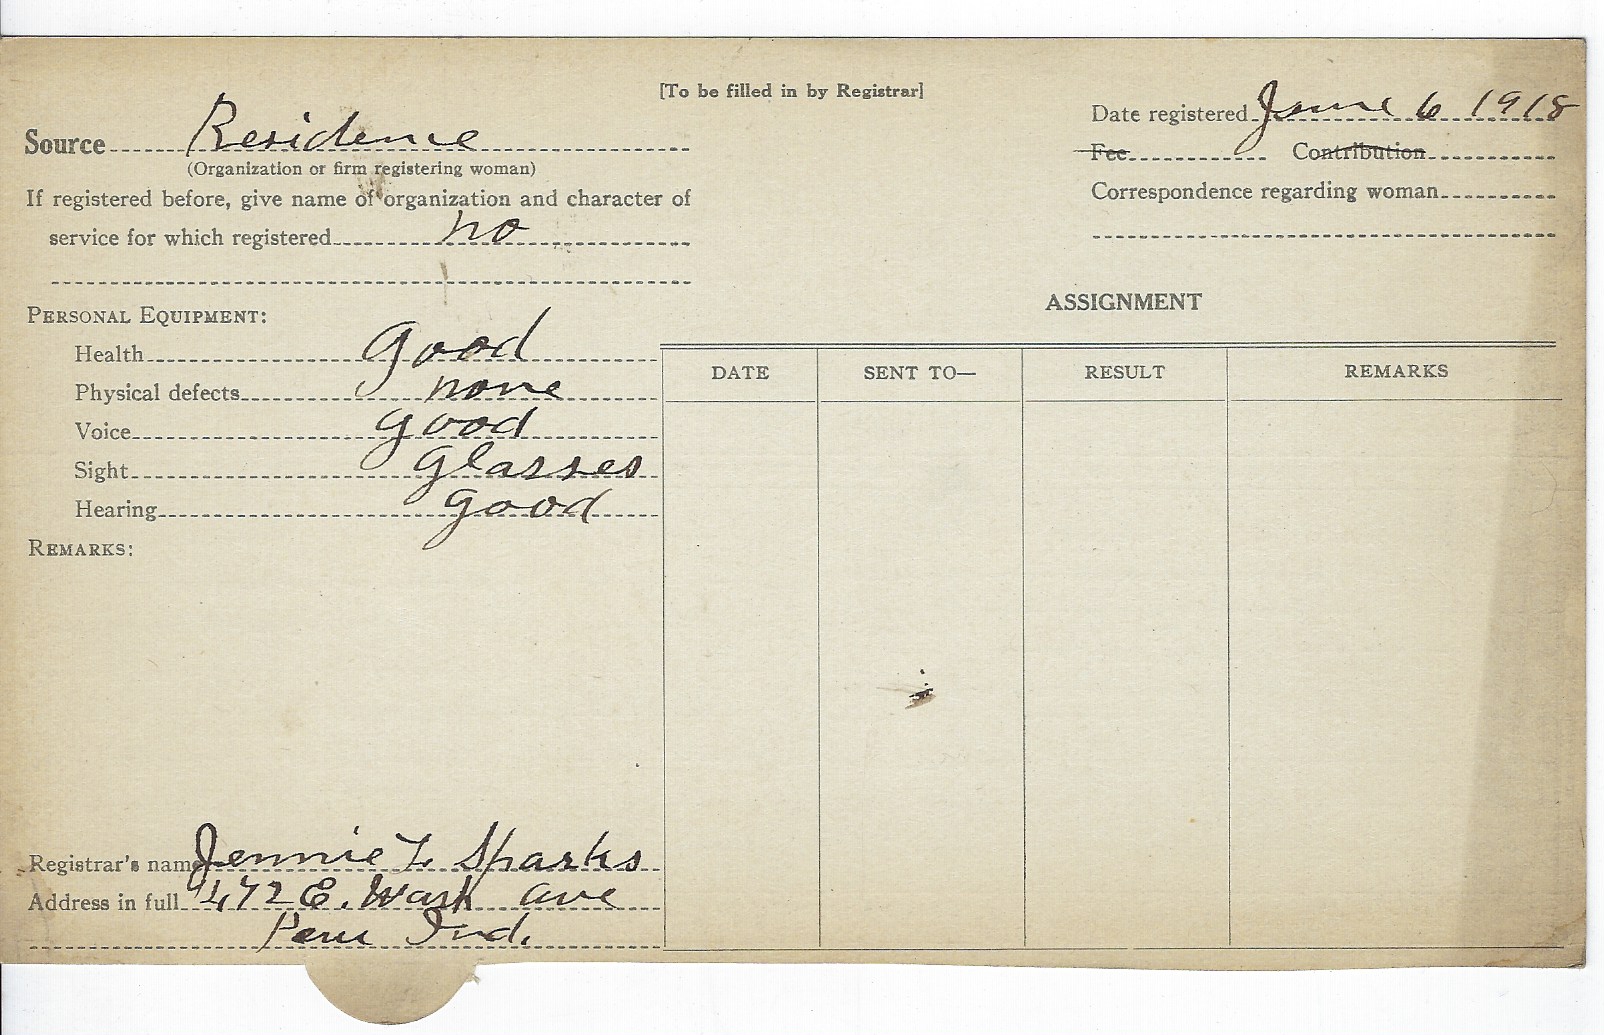 [To be filled in by Registrar]
Source Residence
(Organization or firm registering woman)
If registered before, give name of organization and character of
service for which registered no
Date registered June 6 1918
Fee Contribution
Correspondence regarding woman
PERSONAL EQUIPMENT:
Health good
Physical defects none
Voice good
Sight glasses
Hearing good
REMARKS:
ASSIGNMENT
DATE SENT TO— RESULT REMARKS
Registrar's name Jennie L Sparks
Address in full 472 E. Wash ave
Peru Ind.